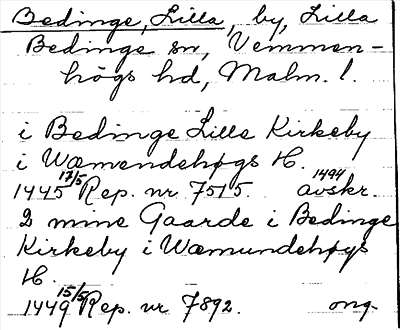 Bedinge, Lilla, by, Lilla
Bedinge sn, Vemmen-
högs hd, Malm. l.
i Bedinge Lille Kirkeby
i Wæmendehøgs H.
1445 17/5 Rep. nr 7515. 1494 avskr.
2 mine Gaarde i Bedinge
Kirkeby i Wæmundehøgs
H.
1449 15/5 Rep. nr 7892. orig.